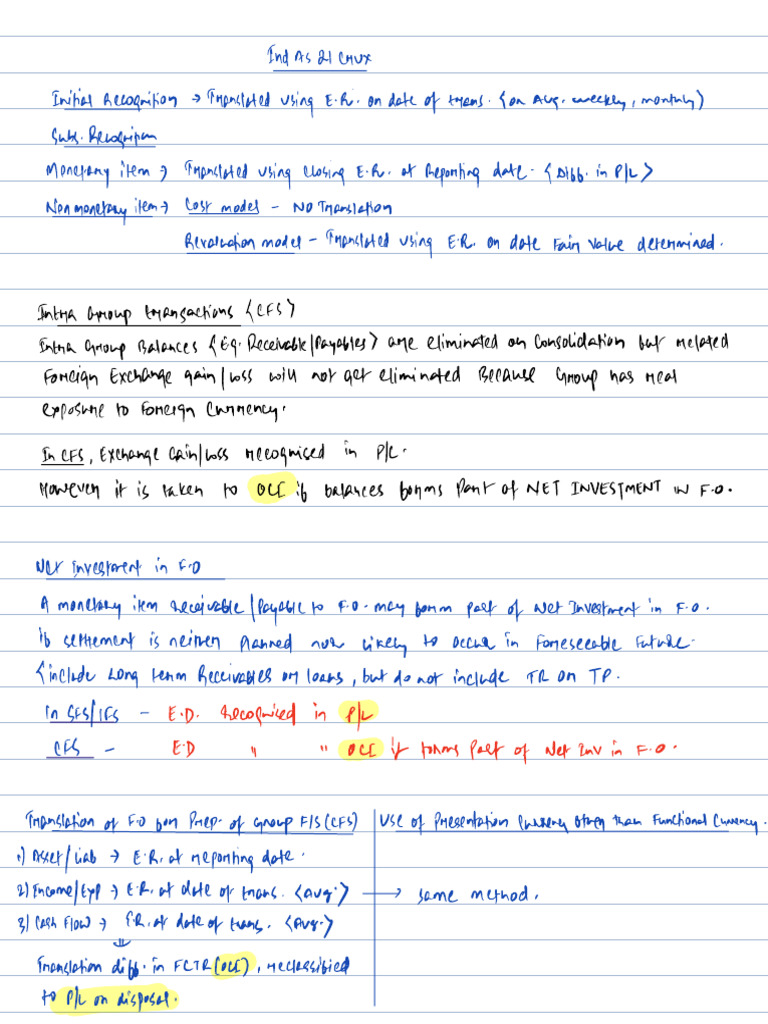 Ind As 21 Crux
Initial Recognition → Translated using E.R. on date of trans. (on Avg. weekly, monthly)
Subs. Recognition
Monetary item → Translated using closing E.R. at Reporting date. (Diff. in P/L)
Non monetary item → Cost model - No Translation
Revaluation model - Translated using E.R. on date Fair value determined.
Intra Group transactions (CFS)
Intra Group Balances (Eg. Receivable/Payables) are eliminated on Consolidation but related
Foreign Exchange gain/loss will not get eliminated Because Group has real
exposure to Foreign Currency.
In CFS, Exchange Gain/Loss recognised in P/L.
However it is taken to OCI if balances forms Part of NET INVESTMENT IN F.O.
Net Investment in F.O
A monetary item receivable/Payable to F.O. may form part of Net Investment in F.O.
if settlement is neither planned nor likely to occur in Foreseeable Future.
(include Long term Receivables or loans, but do not include TR or TP.
In SFS/IFS - E.D. Recognised in P/L
CFS - E.D " " OCI if forms part of Net Inv in F.O.
Translation of F.O for Prep. of Group F/S (CFS)
1) Asset/Liab → E.R. at reporting date.
2) Income/Exp → E.R. at date of trans. (Avg.)
3) Cash Flow → E.R. at date of trans. (Avg.)
⇓
Translation diff. in FCTR (OCI), reclassified
to P/L on disposal.
Use of Presentation Currency other than Functional Currency.
→ same method.